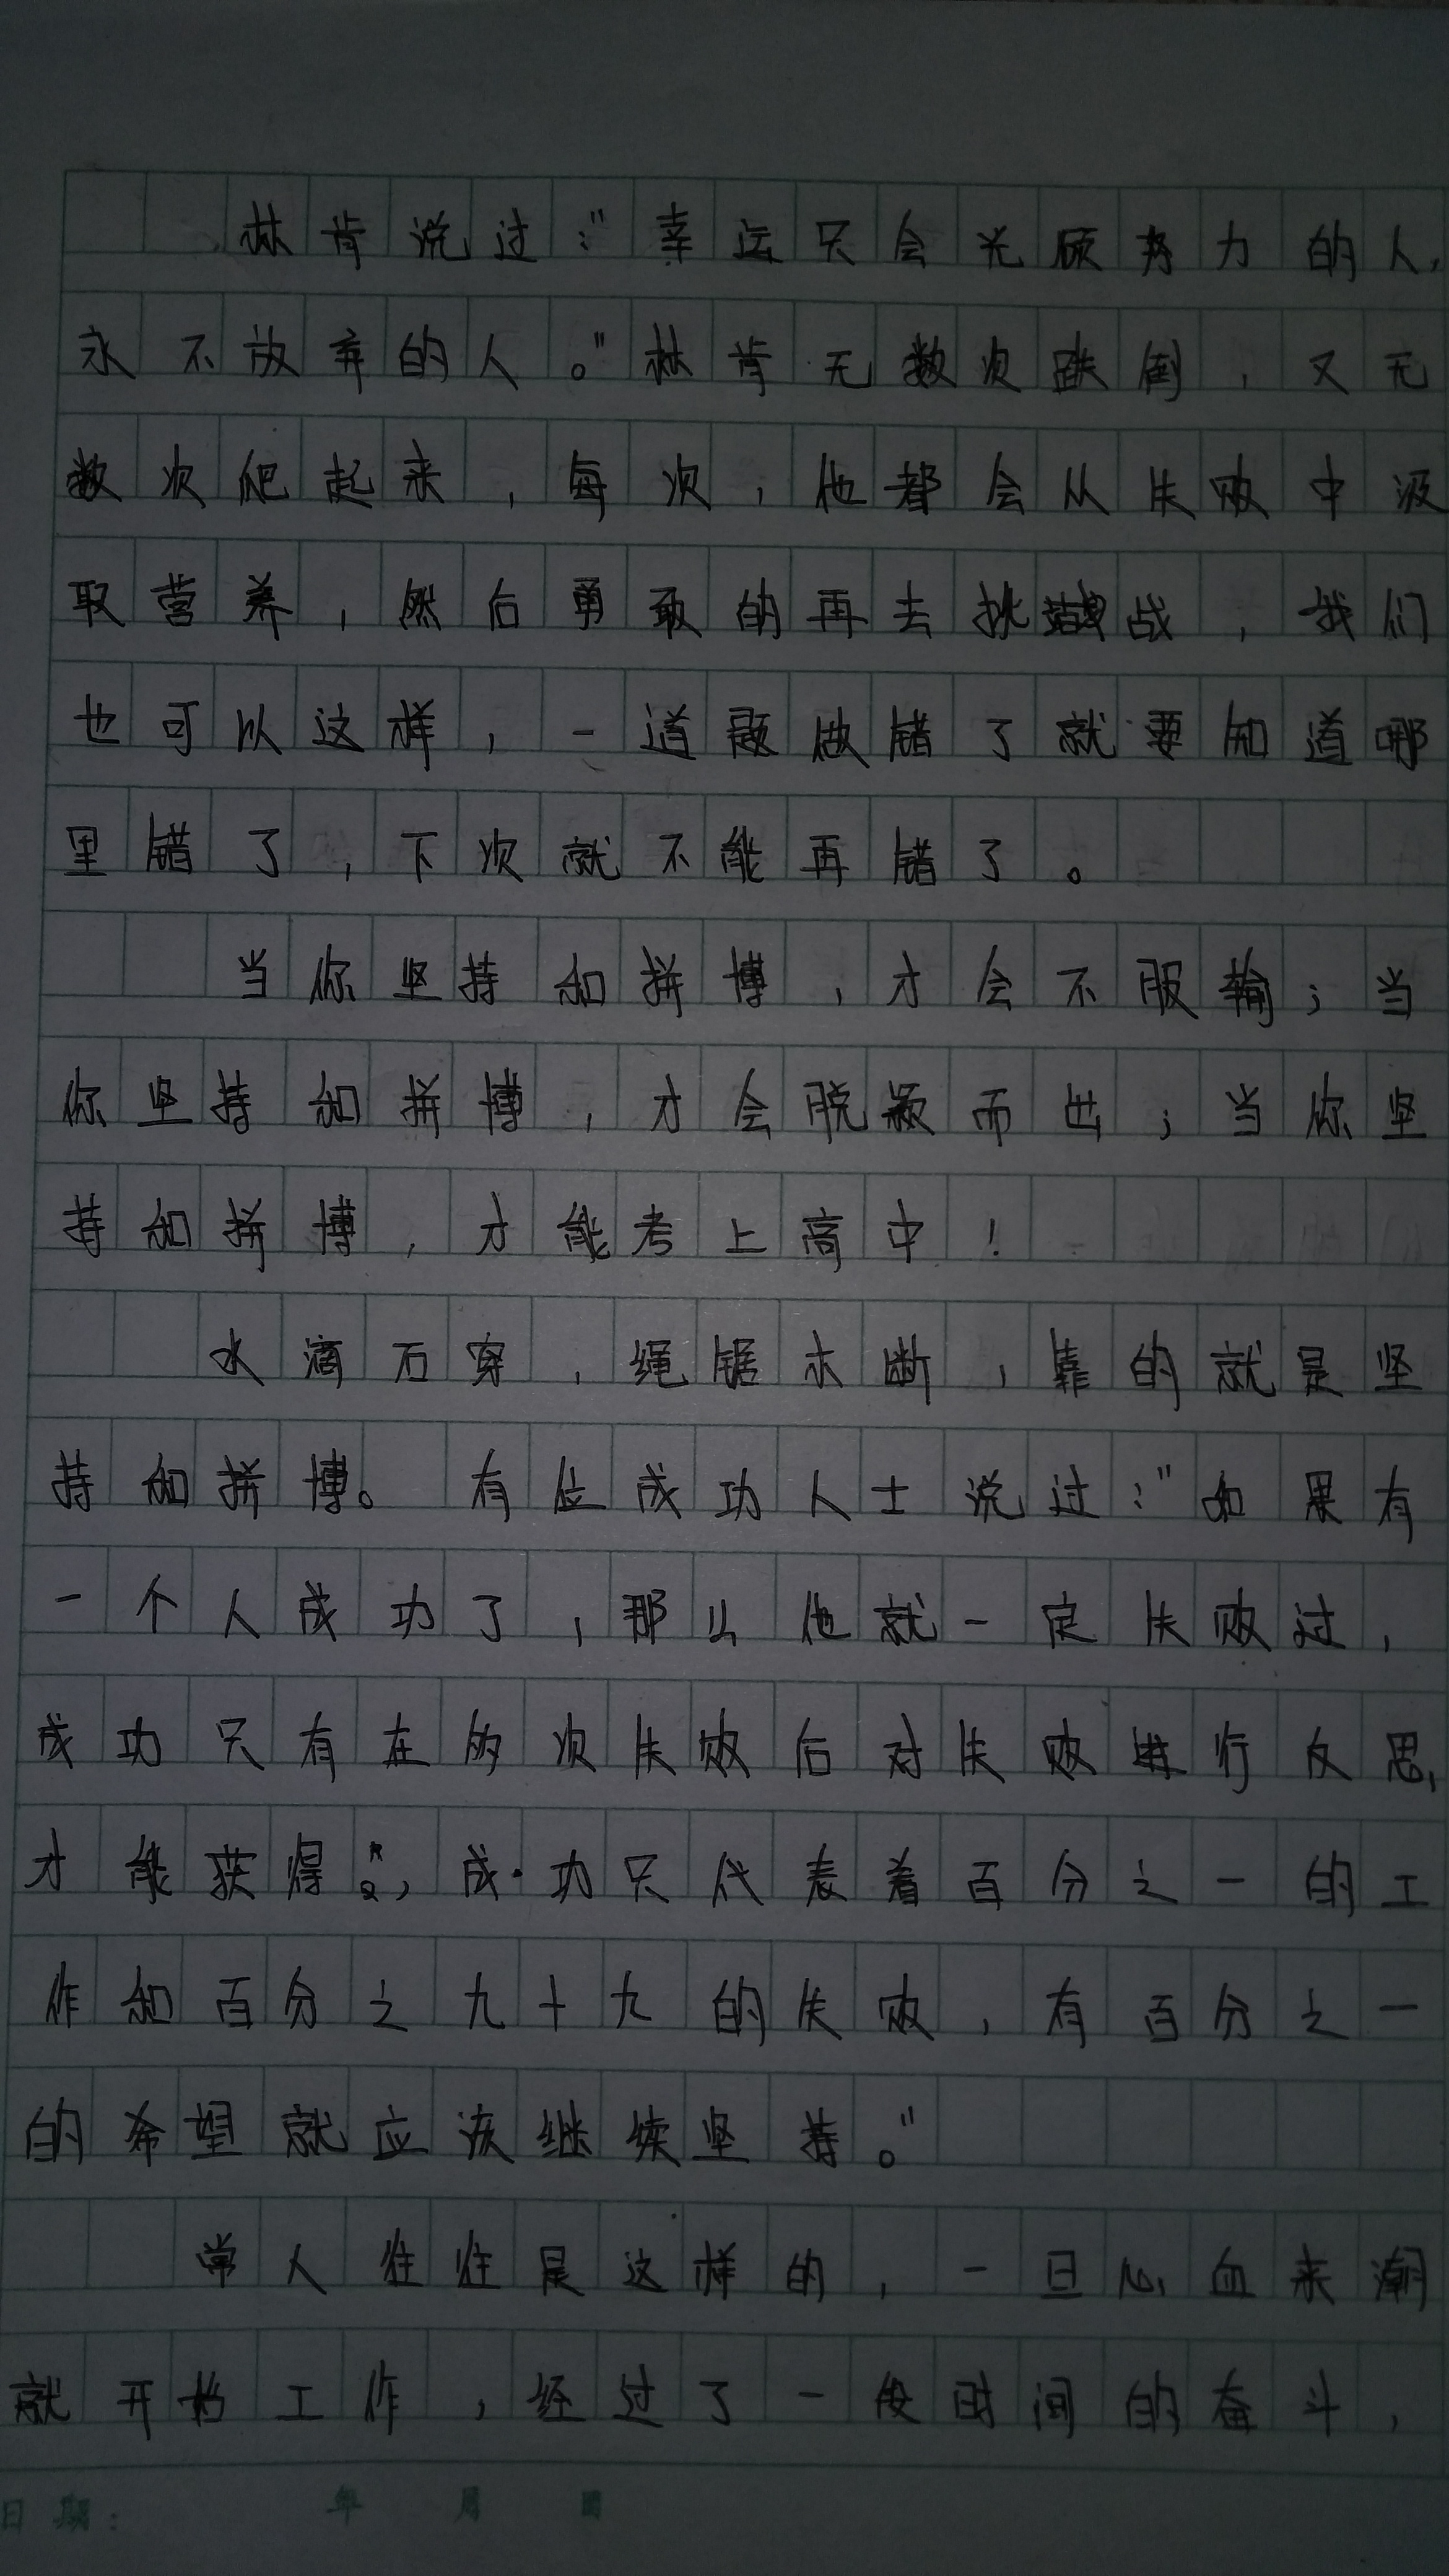 林肯说过:"幸运只会光顾努力的人,
永不放弃的人。"林肯无数次跌倒,又无
数次爬起来,每次,他都会从失败中汲
取营养,然后勇敢的再去挑战,我们
也可以这样,一道题做错了就要知道哪
里错了,下次就不能再错了。
当你坚持和拼博,才会不服输;当
你坚持和拼博,才会脱颖而出;当你坚
持和拼博,才能考上高中!
水滴石穿,绳锯木断,靠的就是坚
持和拼博。有位成功人士说过:"如果有
一个人成功了,那么他就一定失败过,
成功只有在多次失败后对失败进行反思,
才能获得。,成功只代表着百分之一的工
作和百分之九十九的失败,有百分之一
的希望就应该继续坚持。"
常人往往是这样的,一旦心血来潮
就开始工作,经过了一段时间的奋斗,
日期: 年 月 日